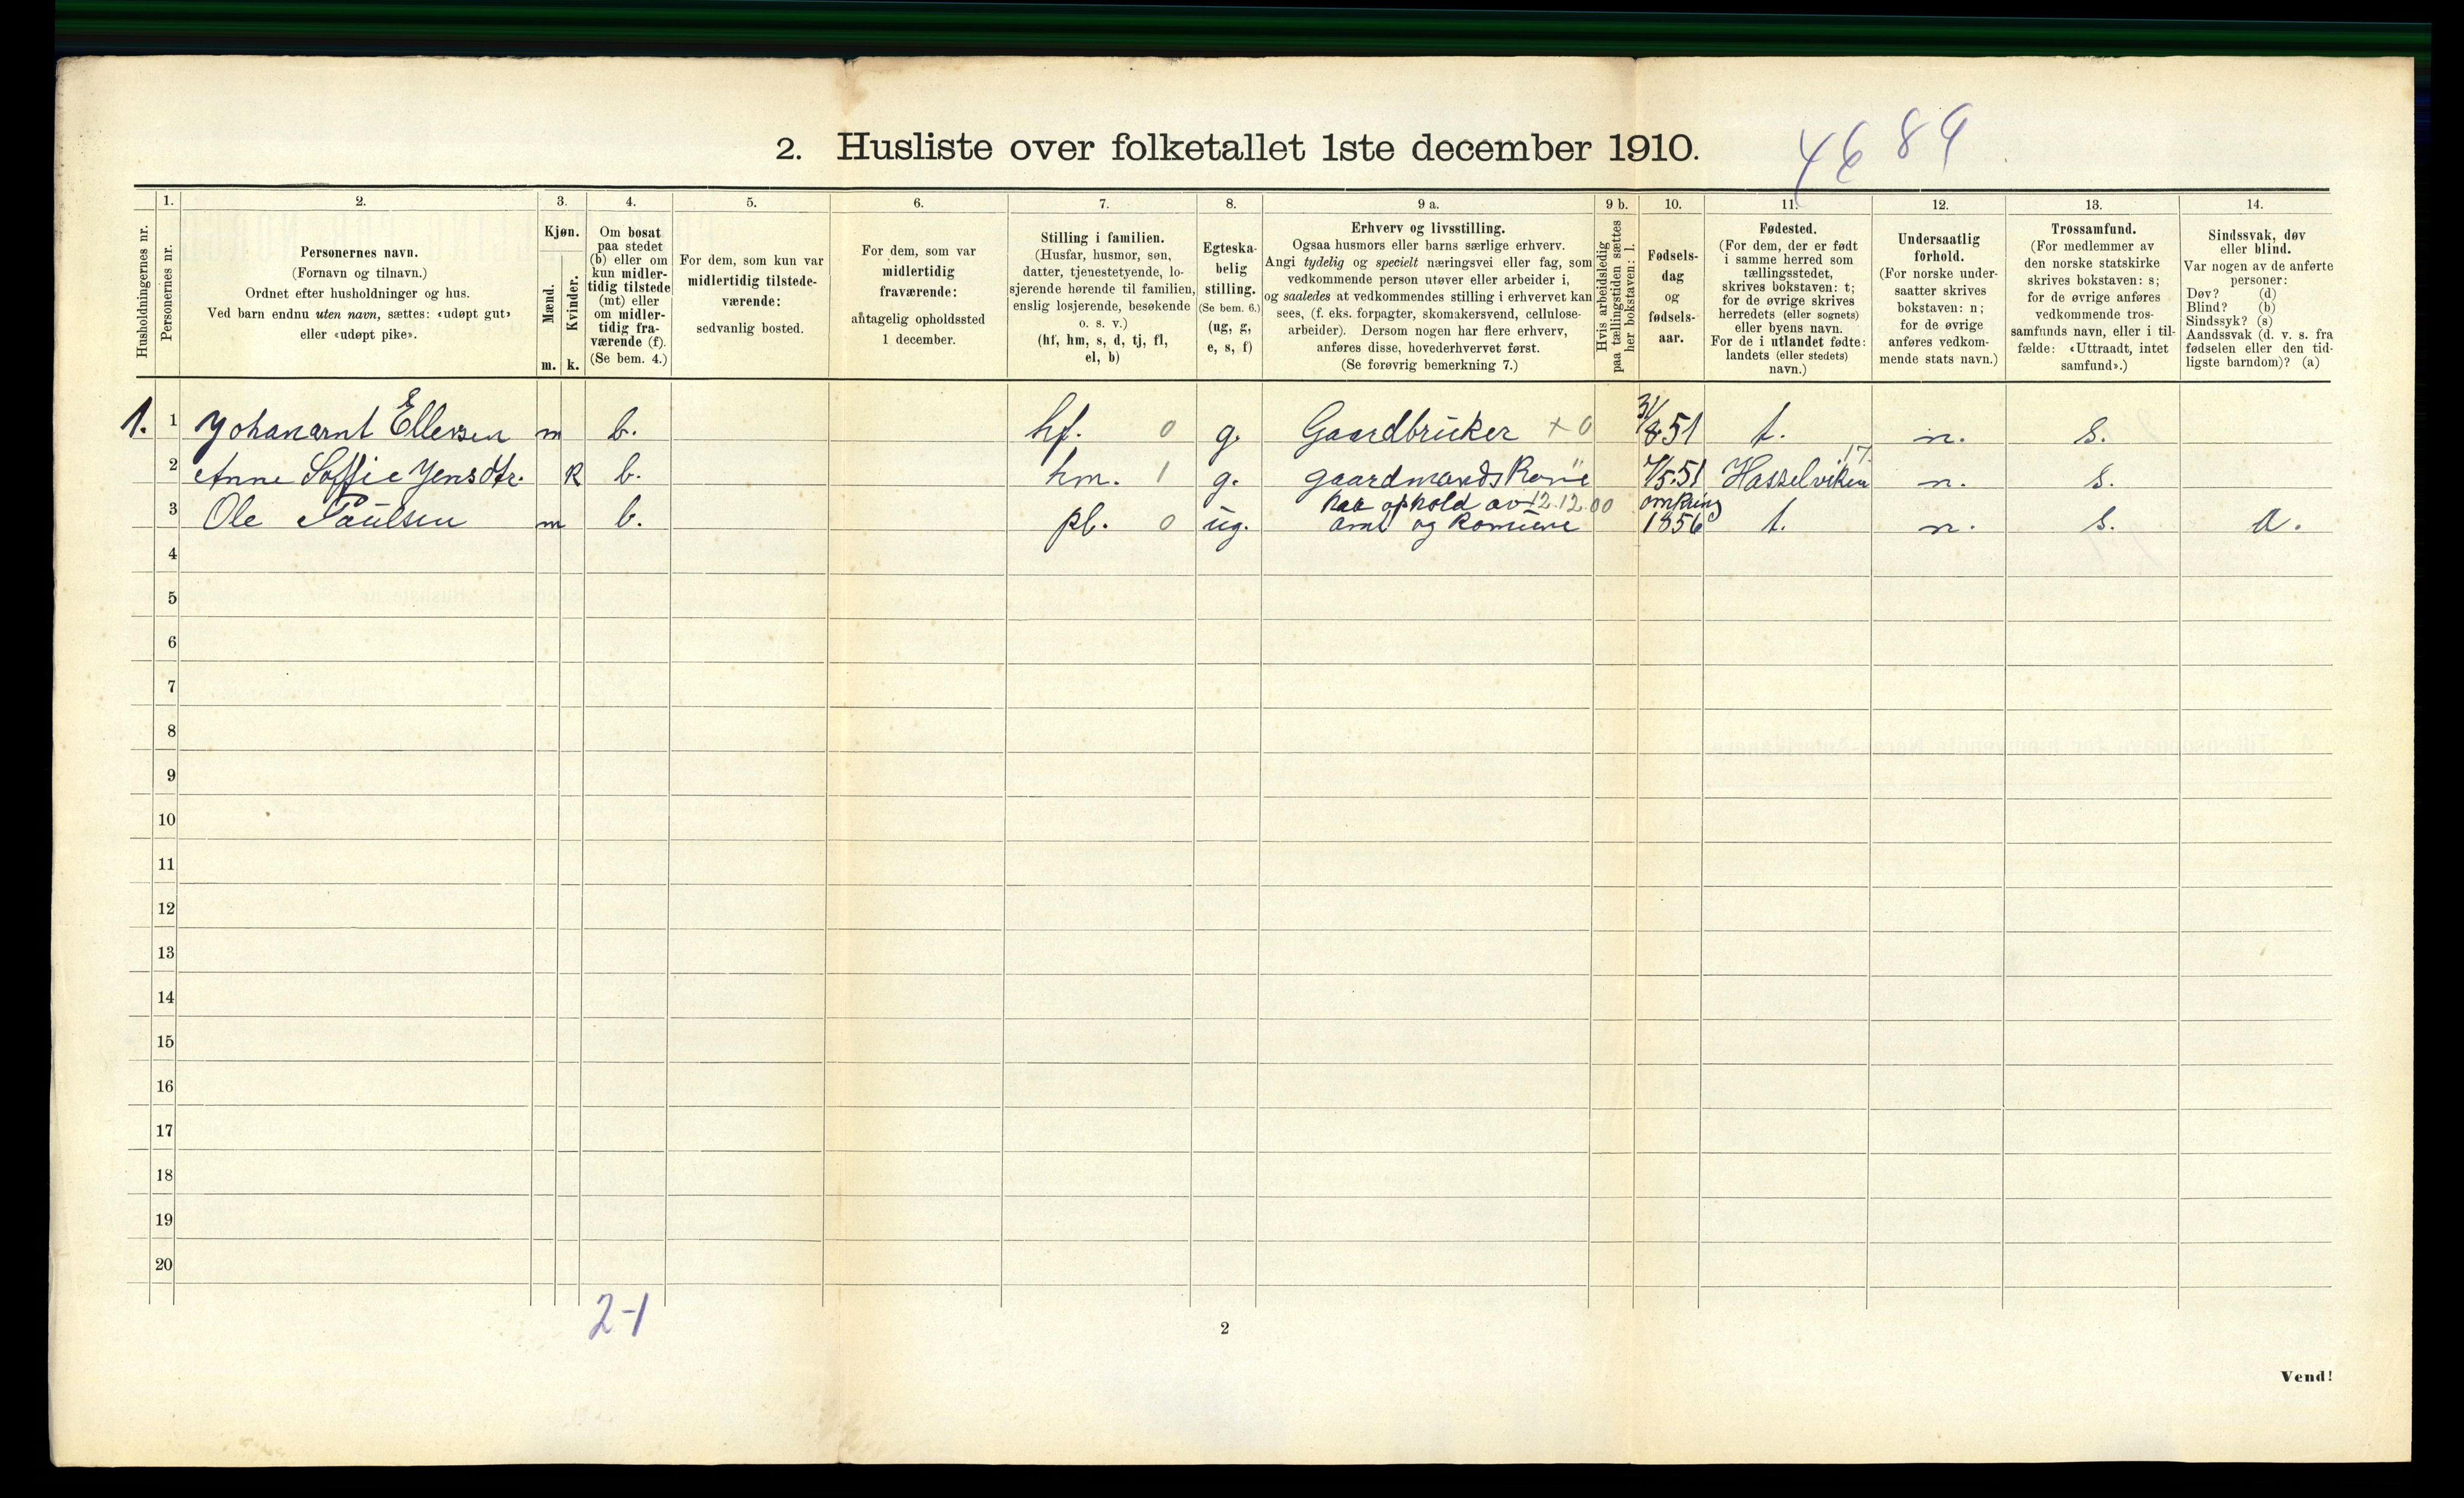 2. Husliste over folketallet 1ste december 1910.
4684
Husholdningernes nr.
1.
Personernes nr.
2.
Personernes navn.
(Fornavn og tilnavn.)
Ordnet efter husholdninger og hus.
Ved barn endnu uten navn, sættes: «udøpt gut»
eller «udøpt pike».
3.
Kjøn.
Mænd.
Kvinder.
m. k.
4.
Om bosat
paa stedet
(b) eller om
kun midler-
tidig tilstede
(mt) eller
om midler-
tidig fra-
værende (f).
(Se bem. 4.)
5.
For dem, som kun var
midlertidig tilstede-
værende:
sedvanlig bosted.
6.
For dem, som var
midlertidig
fraværende:
antagelig opholdssted
1 december.
7.
Stilling i familien.
(Husfar, husmor, søn,
datter, tjenestetyende, lo-
sjerende hørende til familien,
enslig losjerende, besøkende
o. s. v.)
(hf, hm, s, d, tj, fl,
el, b)
8.
Egteska-
belig
stilling.
(Se bem. 6.)
(ug, g,
e, s, f)
9 a.
Erhverv og livsstilling.
Ogsaa husmors eller barns særlige erhverv.
Angi tydelig og specielt næringsvei eller fag, som
vedkommende person utøver eller arbeider i,
og saaledes at vedkommendes stilling i erhvervet kan
sees, (f. eks. forpagter, skomakersvend, cellulose-
arbeider). Dersom nogen har flere erhverv,
anføres disse, hovederhvervet først.
(Se forøvrig bemerkning 7.)
9 b.
Hvis arbeidsledig
paa tællingstiden sættes
her bokstaven: l.
10.
Fødsels-
dag
og
fødsels-
aar.
11.
Fødested.
(For dem, der er født
i samme herred som
tællingsstedet,
skrives bokstaven: t;
for de øvrige skrives
herredets (eller sognets)
eller byens navn.
For de i utlandet fødte:
landets (eller stedets)
navn.)
12.
Undersaatlig
forhold.
(For norske under-
saatter skrives
bokstaven: n;
for de øvrige
anføres vedkom-
mende stats navn.)
13.
Trossamfund.
(For medlemmer av
den norske statskirke
skrives bokstaven: s;
for de øvrige anføres
vedkommende tros-
samfunds navn, eller i til-
fælde: «Uttraadt, intet
samfund».)
14.
Sindssvak, døv
eller blind.
Var nogen av de anførte
personer:
Døv? (d)
Blind? (b)
Sindssyk? (s)
Aandssvak (d. v. s. fra
fødselen eller den tid-
ligste barndom)? (a)
1. 1 Johanarnt Ellersen m b. hf. 0 g. Gaardbruker + 0 31/8 51 t. n. s.
2 Anne Soffie Jensdtr. k b. hm. 1 g. gaardmandskone " 7/5 51 Hasselviken 17. n. s.
3 Ole Paulsen m b. pl. 0 ug. har ophold av 12.12.00 amt og komune omkring 1856 t. n. s. a.
4
5
6
7
8
9
10
11
12
13
14
15
16
17
18
19
20
2-1
2
Vend!